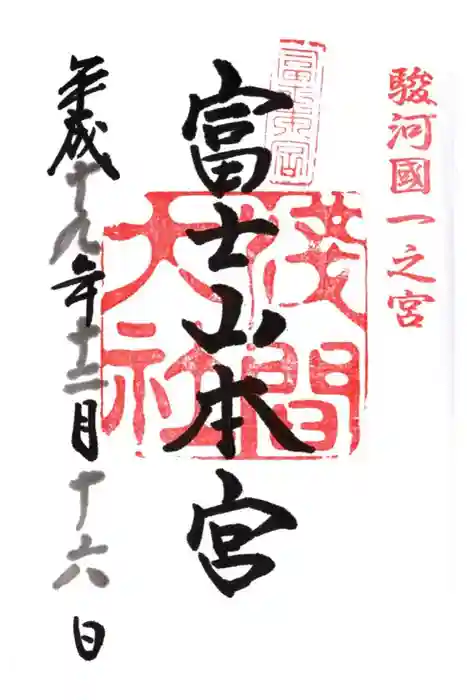 駿河國一之宮
富士山本宮
淺間大社
平成十九年十二月十六日